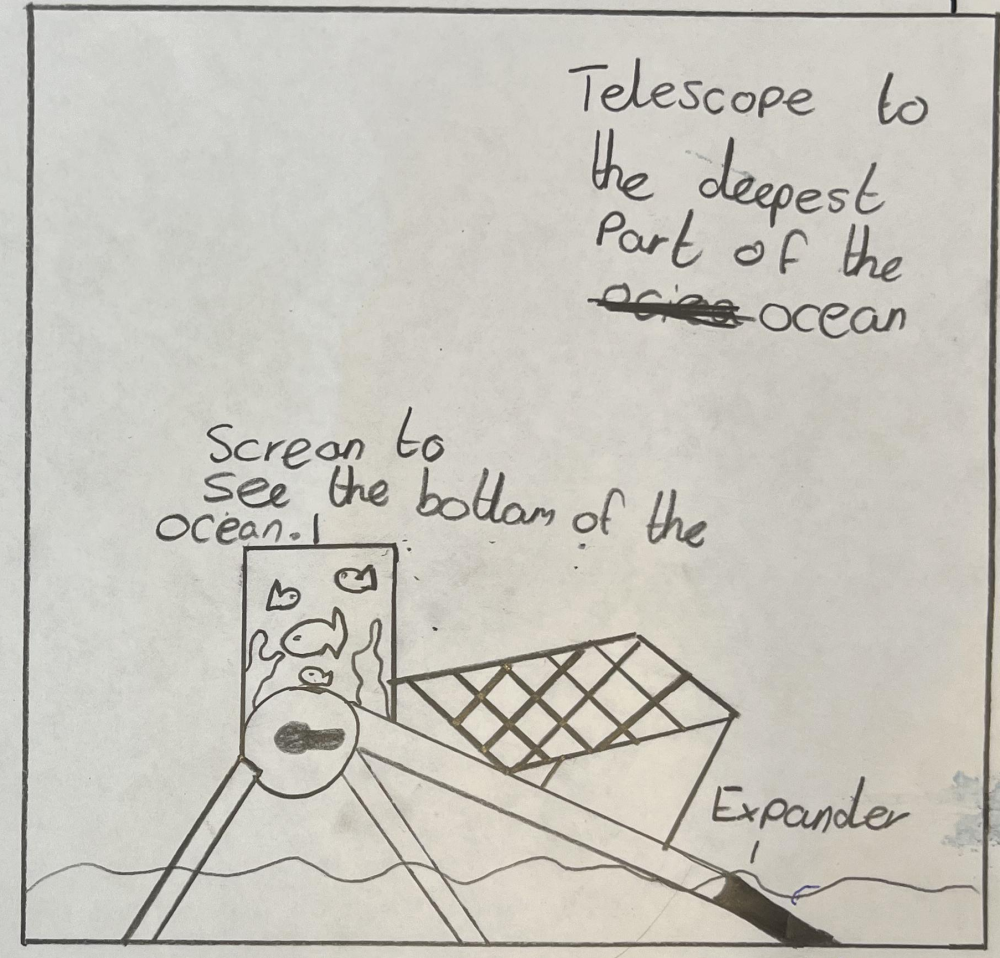 Telescope to
the deepest
Part of the
ocean
Screan to
see the bottom of the
ocean.
Expander